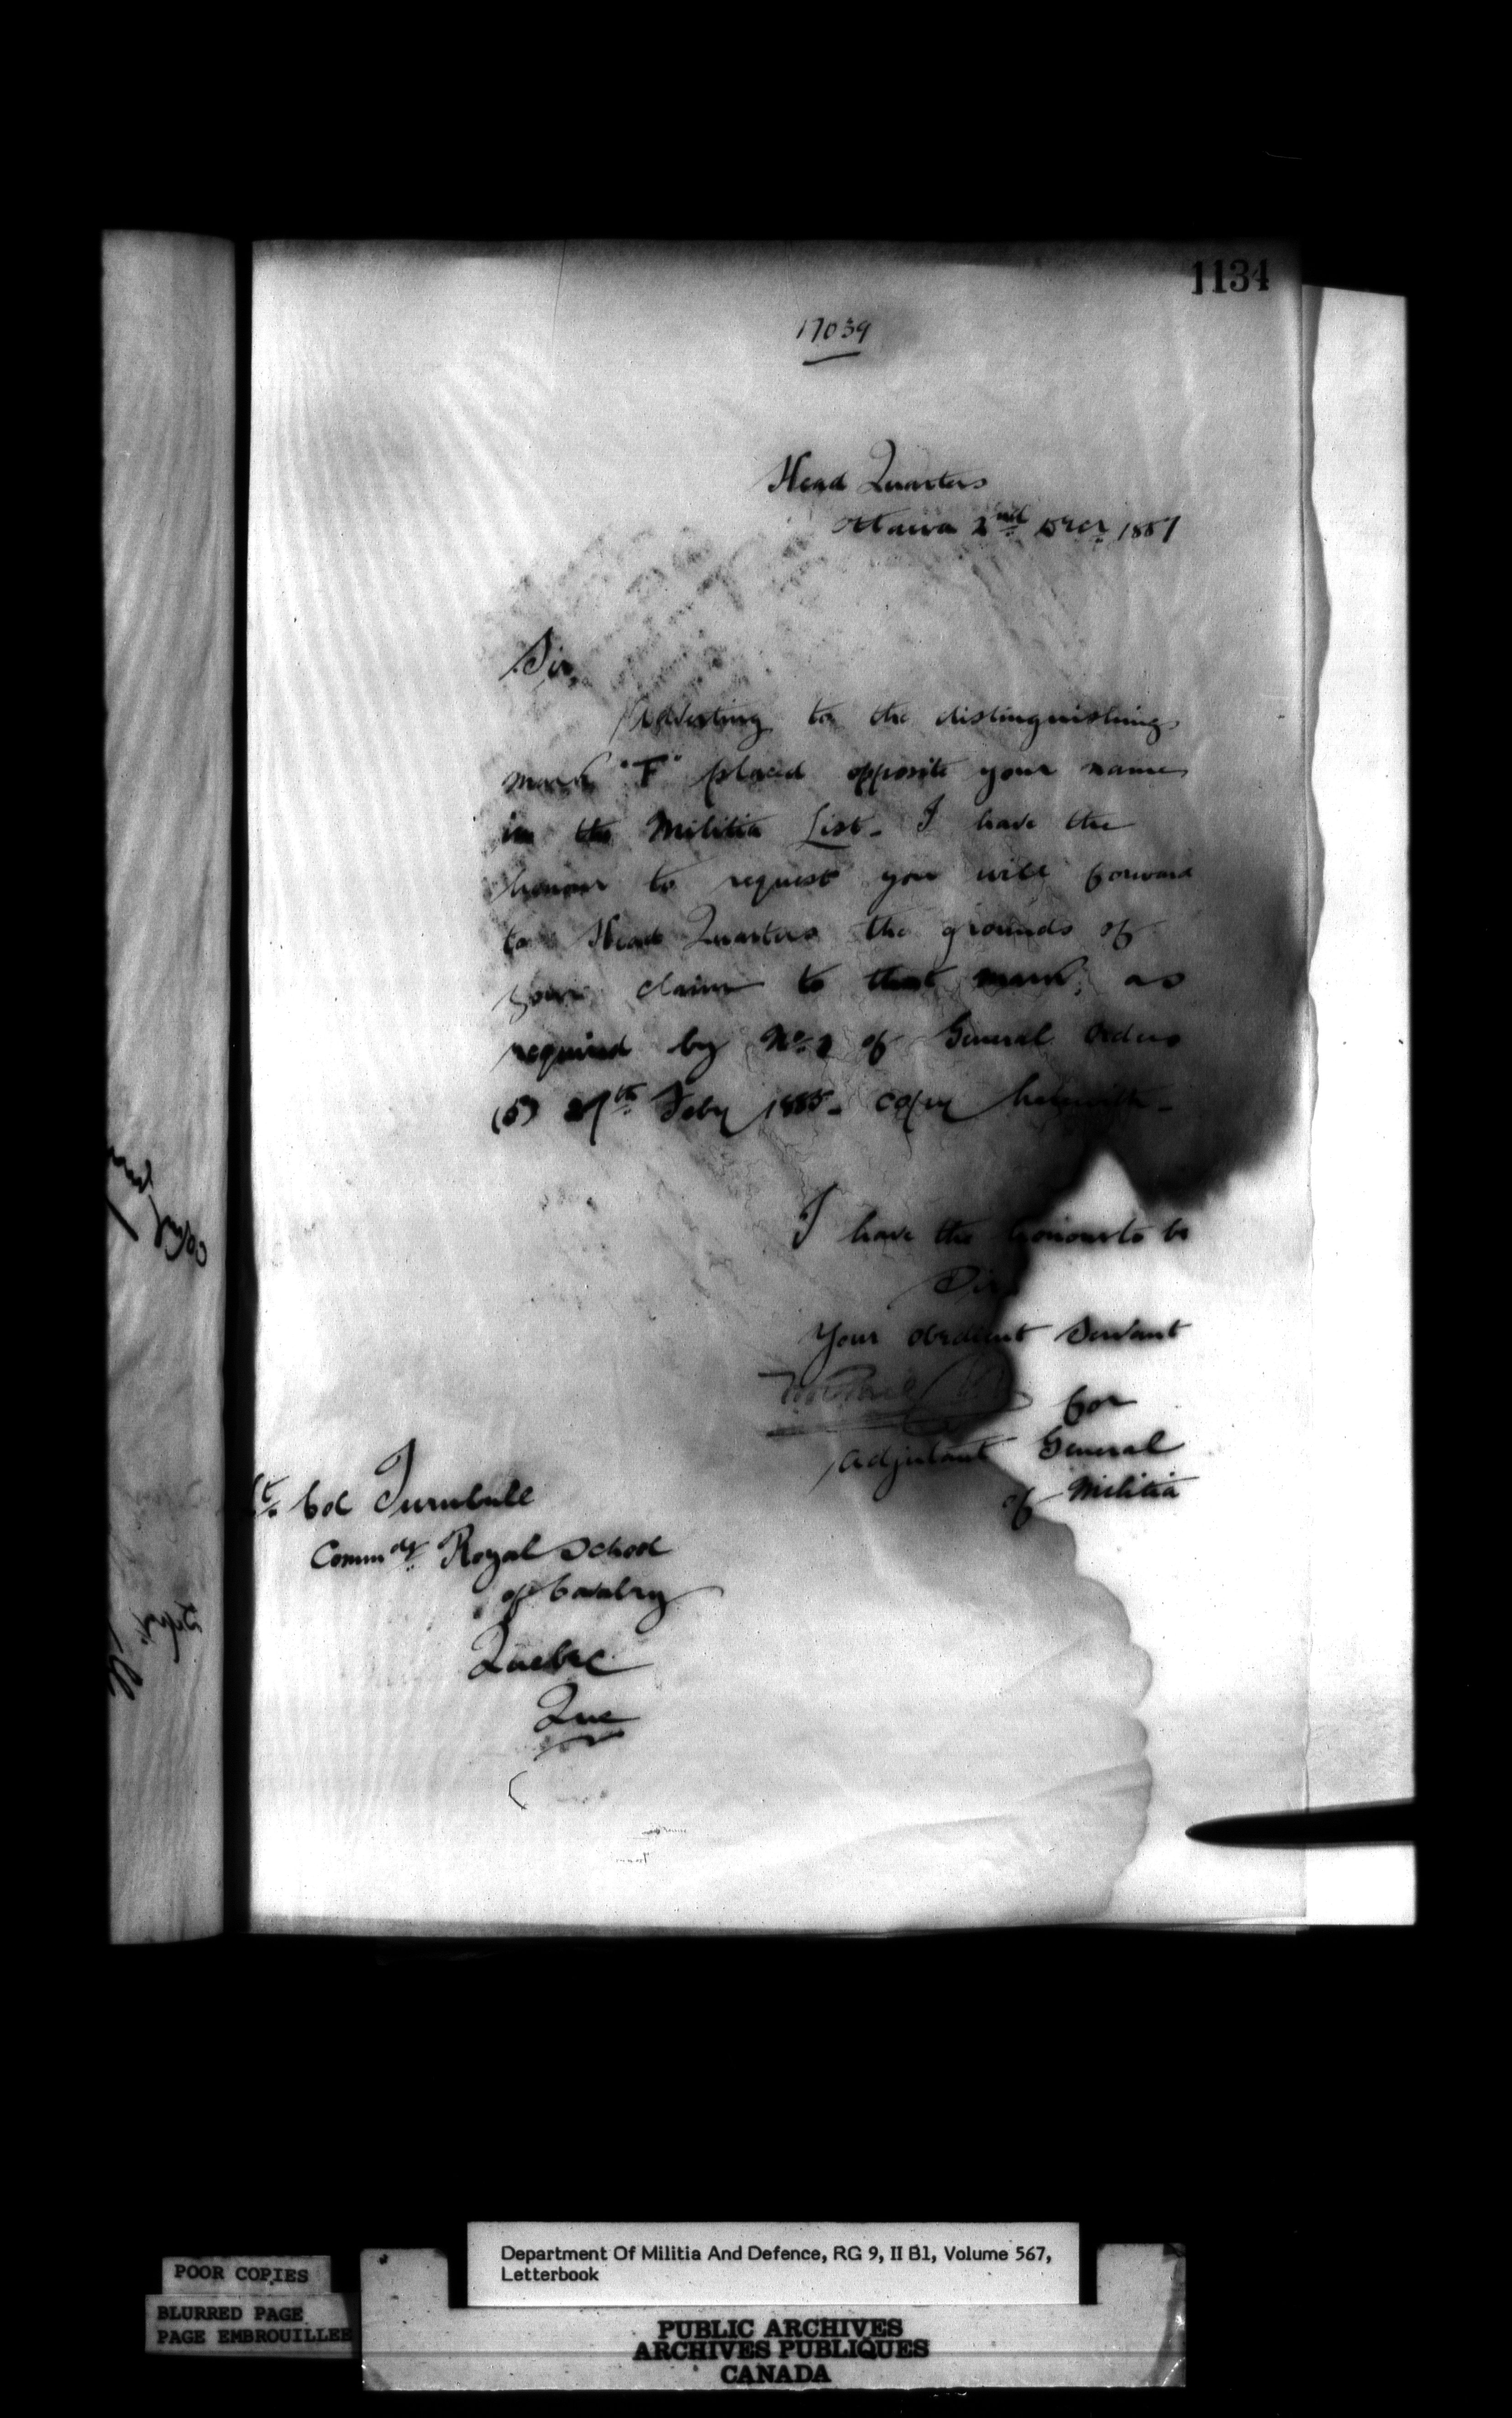 1134
17039
Head Quarters
Ottawa 2nd Decr. 1887
Sir,
Adverting to the distinguishing
mark "F" placed opposite your name
in the Militia List. I have the
honour to request you will forward
to Head Quarters the grounds of
your claim to that mark, as
required by No. 2 of General Orders
(5) 27th Feby 1885. copy herewith.
I have the honour to be
Sir
Your obedient Servant
for
Adjutant General
of Militia
Lt. Col Turnbull
Commdt. Royal School
of Cavalry
Quebec
Que
POOR COPIES
BLURRED PAGE
PAGE EMBROUILLEE
Department Of Militia And Defence, RG 9, II B1, Volume 567,
Letterbook
PUBLIC ARCHIVES
ARCHIVES PUBLIQUES
CANADA